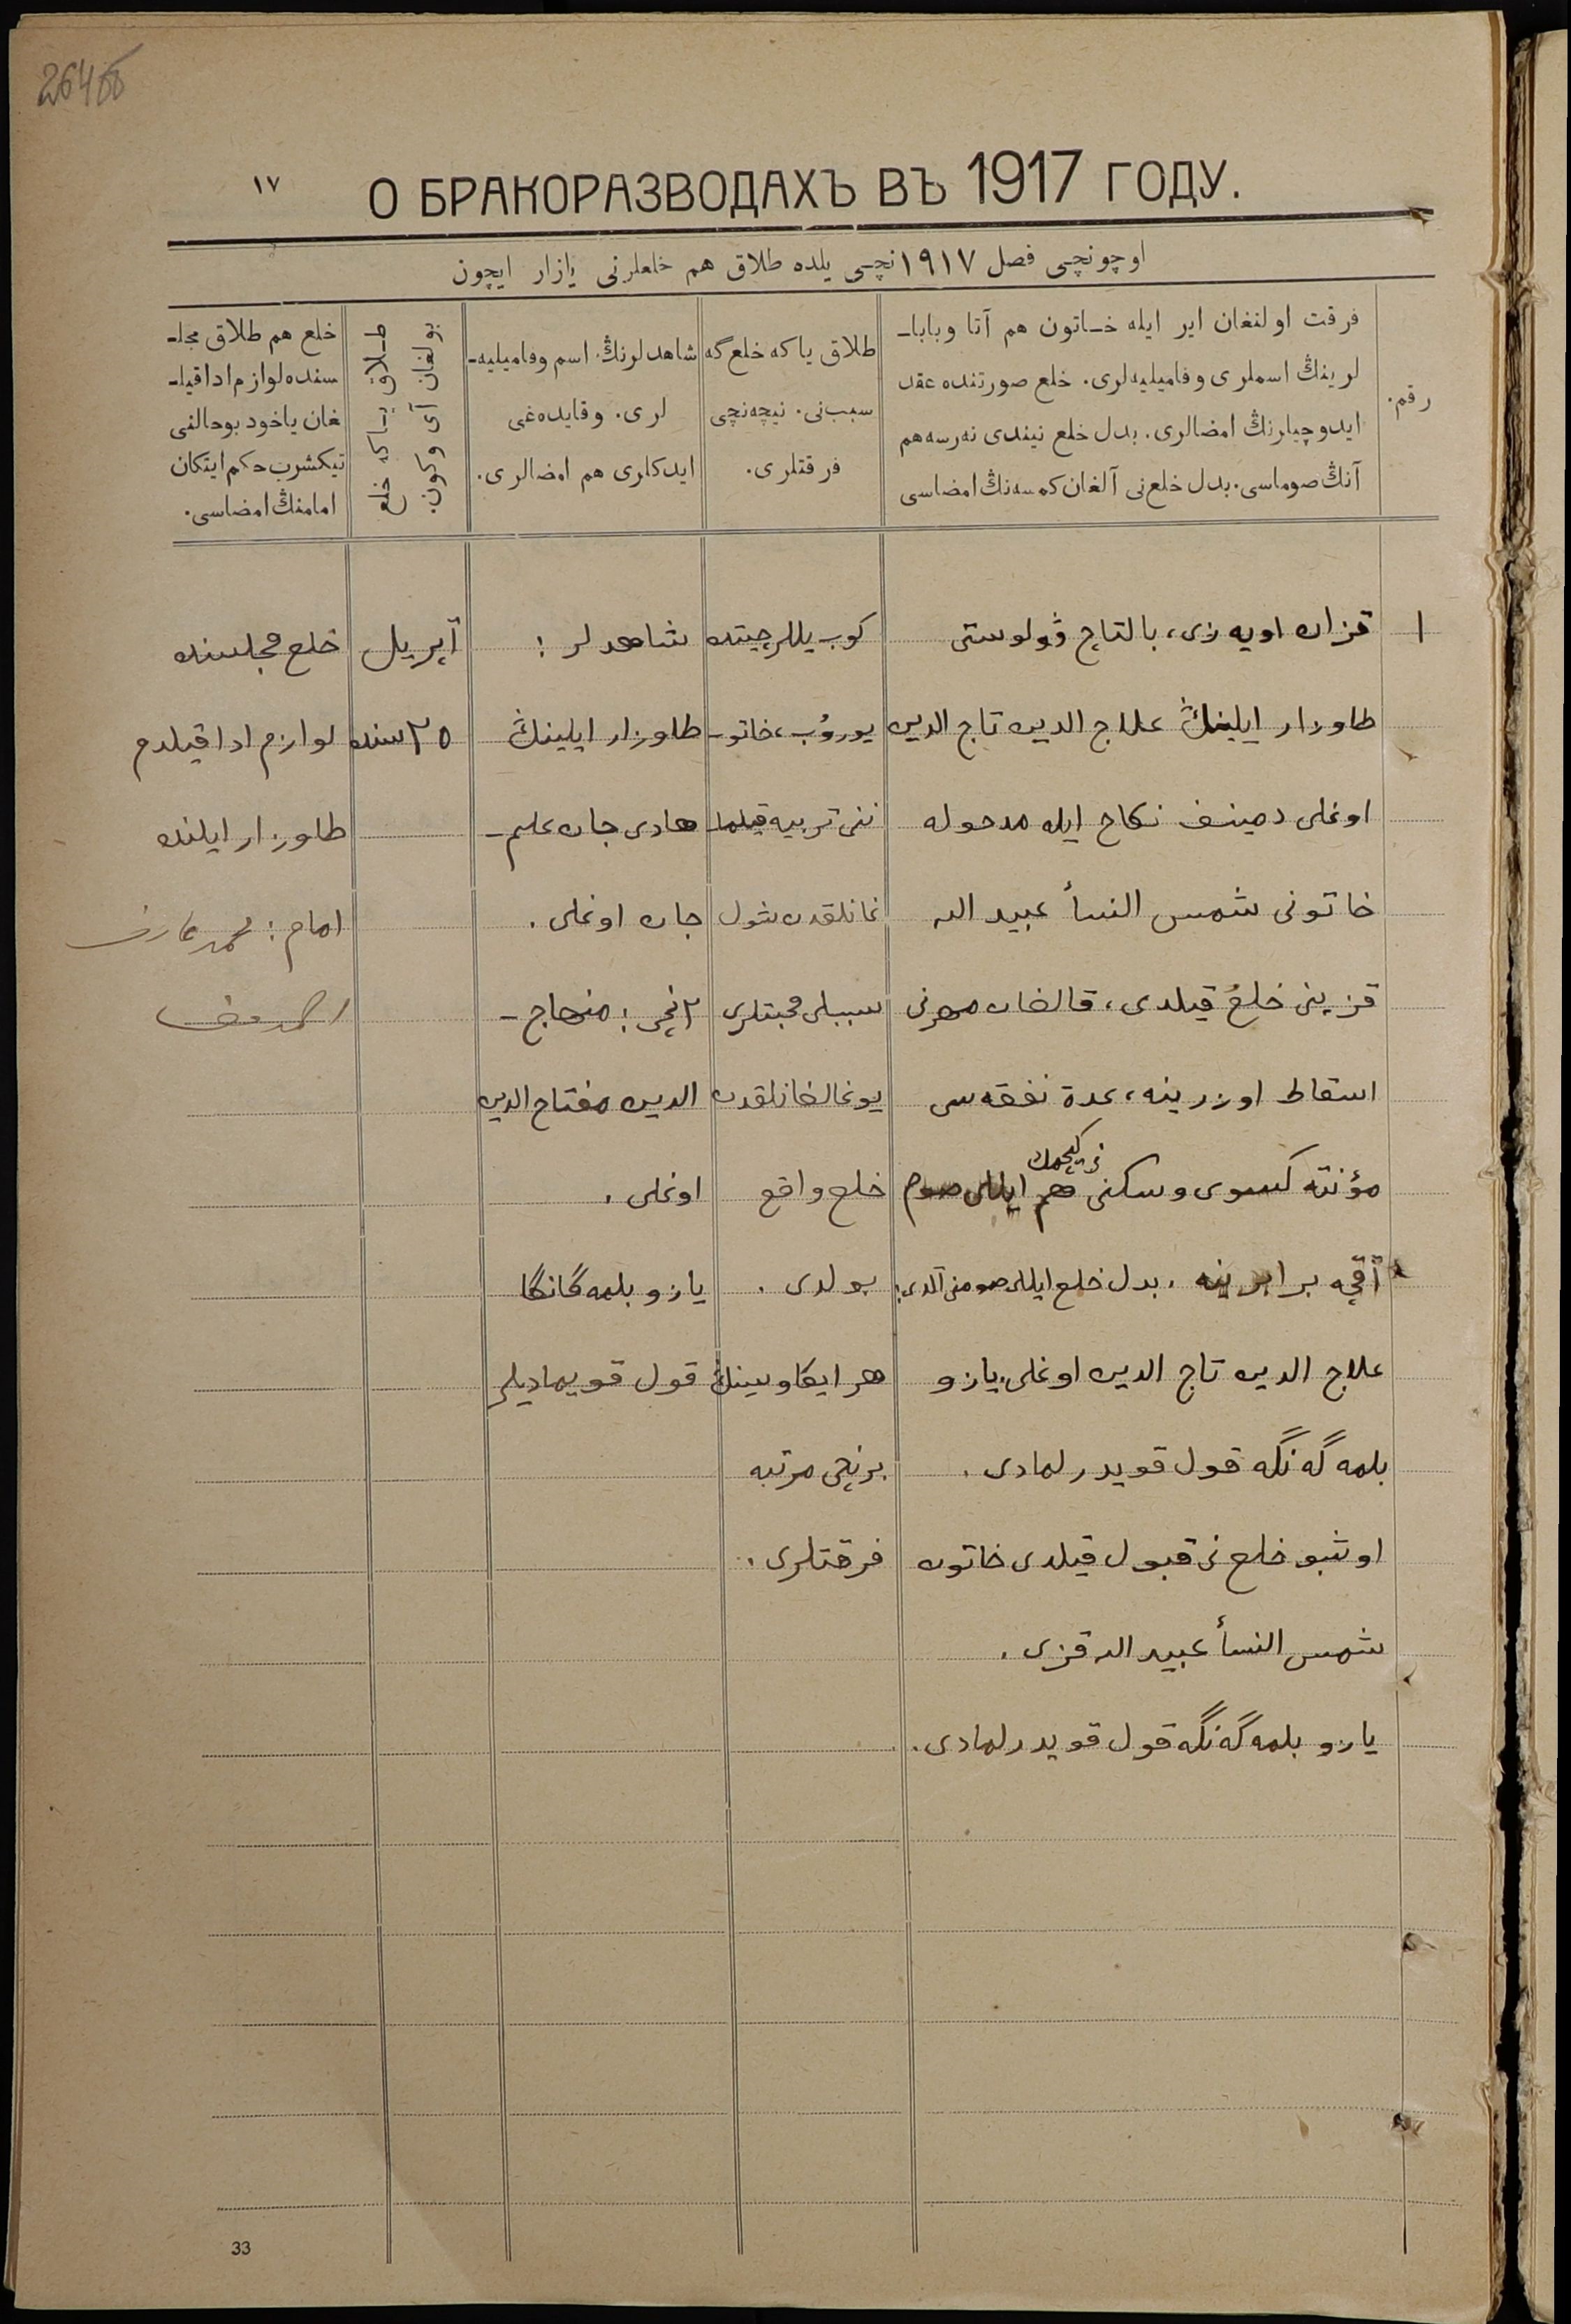 264об
١٧
О БРАКОРАЗВОДАХЪ ВЪ 1917 ГОДУ.
اوچونچی فصل ١٩١٧نچی یلده طلاق هم خلعلرنی یازار ایچون
رقم.
فرقت اولنغان ایر ایله خاتون هم آتا وبابا-
لرینڭ اسملری وفامیلیه‌لری. خلع صورتنده عقد
ایدوچیلرنڭ امضالری. بدل خلع نیندی نه‌رسه هم
آنڭ صوماسی. بدل خلع‌نی آلغان کمسه‌نڭ امضاسی
طلاق یاکه خلع‌گه
سبب‌نی. نیچه‌نچی
فرقتلری.
شاهدلرنڭ اسم وفامیلیه-
لری. وقایده‌غی
ایدکلری هم امضالری.
طلاق یاکه خلع
بولغان آی وکون.
خلع هم طلاق مجلـ-
سنده لوازم ادا قیلـ-
غان یاخود بوحالنی
تیکشرب حکم ایتکان
امامنڭ امضاسی.
١
قزان اویه‌زی، بالتاچ ڤولوستی
طاوزار ایلینڭ علاج الدین تاج الدین
اوغلی دمینف نکاح ایله مدخوله
خاتونی شمس النسأ عبید الله
قزینی خلع قیلدی، قالغان مهرنی
اسقاط اوزرینه، عدة نفقه‌سی
نی کیچمك
مؤنته کسوی وسکنی هم ایللی صوم
آقچه برابرینه. بدل خلع ایللی صومنی آلدی:
علاج الدین تاج الدین اوغلی. یازو
بلمه‌گه‌نگه قول قویدرلمادی.
اوشبو خلع‌نی قبول قیلدی خاتون
شمس النسأ عبید الله قزی.
یازو بلمه‌گه‌نگه قول قویدرلمادی.
کوب ییللر چیتده
یوروب، خاتو-
ننی تربیه قیلما-
غانلقدن شول
سببلی محبتلری
یوغالغانلقدن
خلع واقع
بولدی.
هر ایکاوسینڭ
برنچی مرتبه
فرقتلری.
شاهدلر:
طاوزار ایلینڭ
هادی جان علیم-
جان اوغلی.
٢نچی: منهاج-
الدین مفتاح الدین
اوغلی.
یازو بلمه‌گانگا
قول قویمادیلر
آپریل
٢٥سنده
خلع مجلسنده
لوازم ادا قیلدم
طاوزار ایلنده
امام: محمد عارف